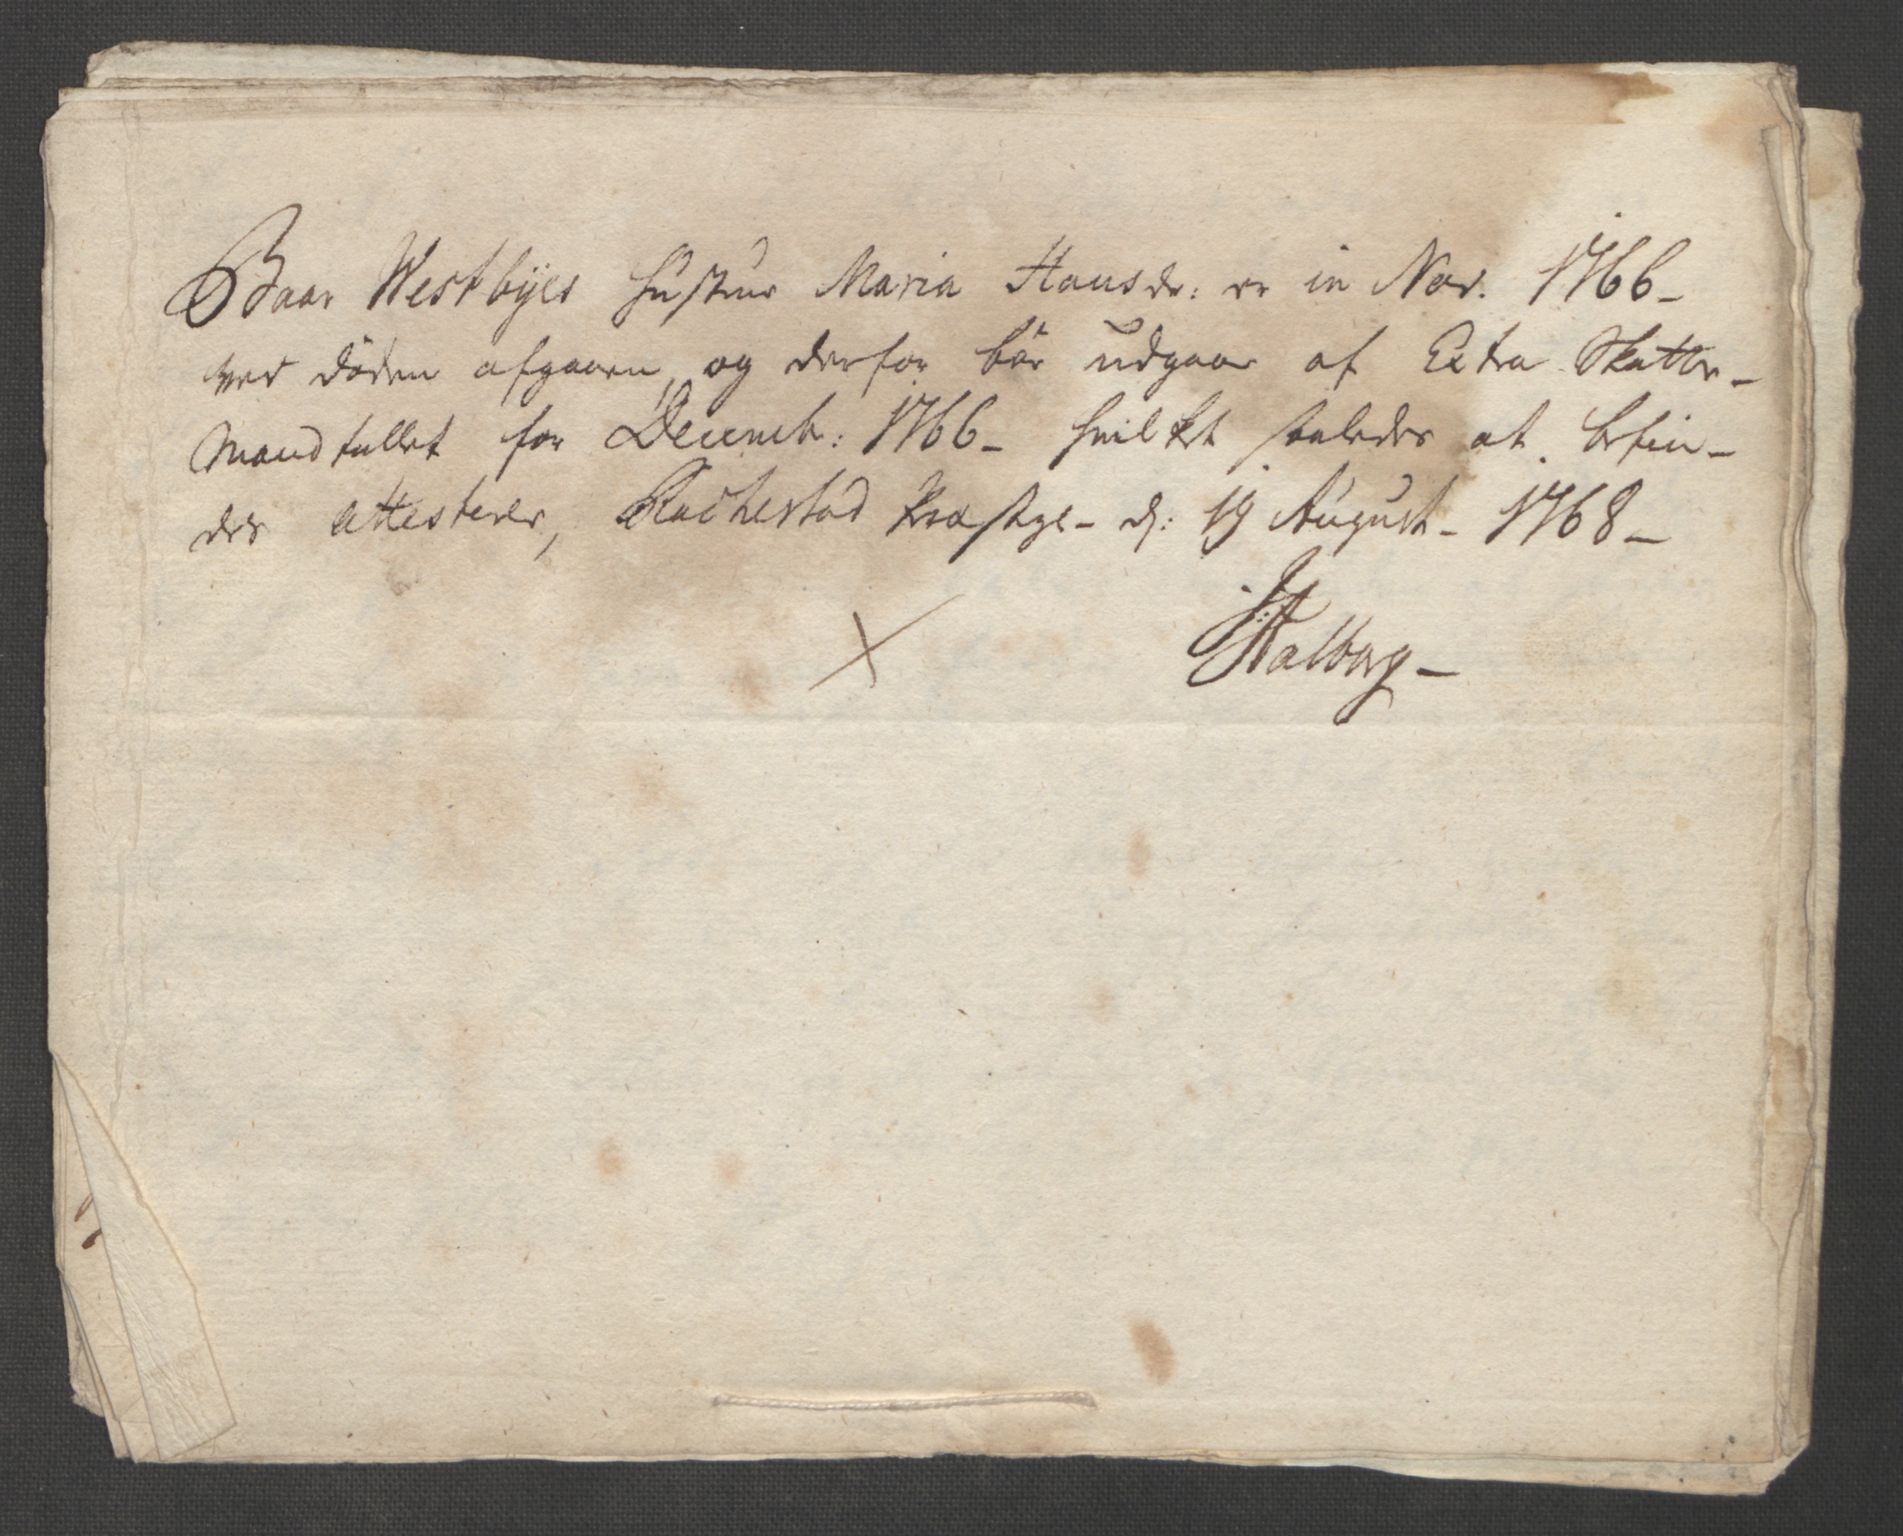 Baar Westbÿes Hustrue Maria Hansdr: er in Nov. 1766-
ved döden afgaaen, og derfor bör udgaae af Extra Skatte-
Mandtallet for Decemb: 1766- hvilket saaledes at befin-
des attesterer, Rachestad Præstge- d: 19 August- 1768-
Aalborg-